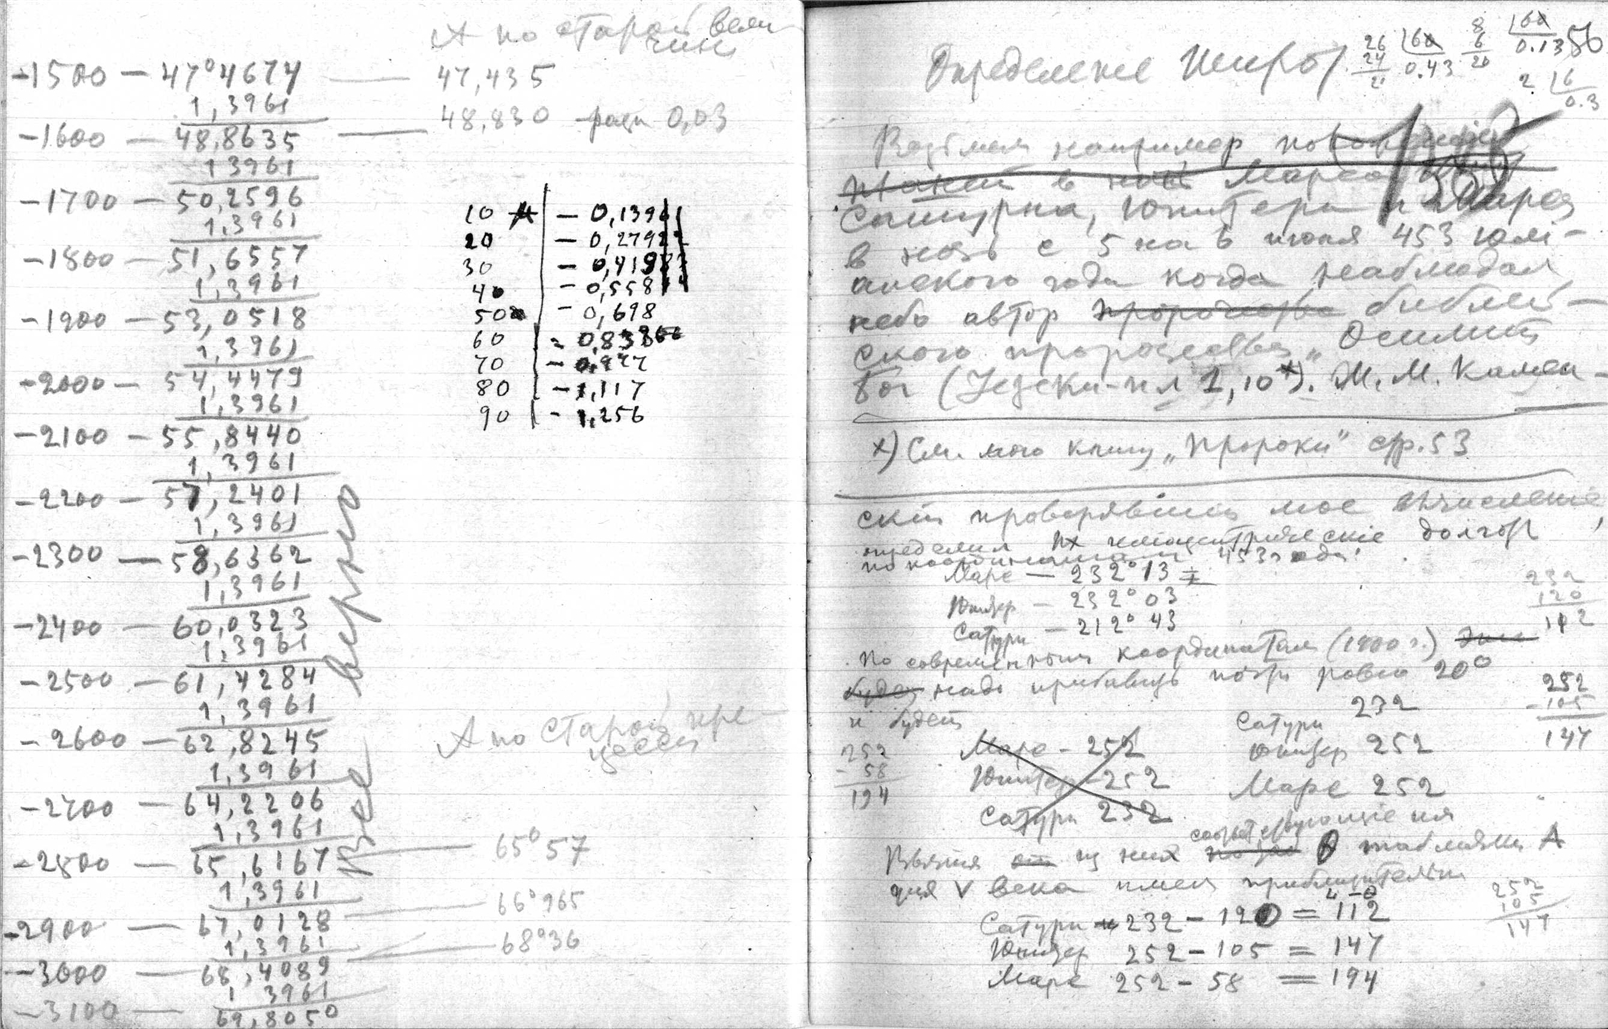 А по старой вели
чин
-1500 — 47°4674 — 47,435
1,3961
-1600 — 48,8635 — 48,830 - 0,03
1,3961
-1700 — 50,2596
1,3961
-1800 — 51,6557
1,3961
-1900 — 53,0518
1,3961
-2000 — 54,4479
1,3961
-2100 — 55,8440
1,3961
-2200 — 57,2401
1,3961
-2300 — 58,6362
1,3961
-2400 — 60,0323
1,3961
-2500 — 61,4284
1,3961
-2600 — 62,8245
1,3961
-2700 — 64,2206
1,3961
-2800 — 65,6167 — 65°57
1,3961
-2900 — 67,0128 — 66°965
1,3961
-3000 — 68,4089 — 68°36
1 3961
-3100 — 69,8050
Все верно
10 — 0,1396
20 — 0,2792
30 — 0,418
40 — 0,558
50 — 0,698
60 — 0,83
70 — 0,977
80 — 1,117
90 — 1,256
А по старой пре-
цессии
Определение широт
56
26
24
20
0.43
8
6
20
160
0.13
2 16
0.3
Возьмем например
в ночь Марса
Сатурна, Юпитера и Марса
в ночь с 5 на 6 июня 453 юли-
анского года когда наблюдал
небо автор пророчества библей-
ского пророчества „Осилит
бог (Иезеки-ил 1,10*). М. М. Камен-
х) См. мою книгу „Пророки" стр. 53
ский проверявший мое вычисление
определил их гелиоцентрические долготы
по координатам 453 года:
Марс — 232°13
Юпитер — 232°03
Сатурн — 212°43
232
120
112
По современным координатам (1900 г.)
будет надо прибавить почти ровно 20°
и будет
252
- 58
194
Марс - 252
Юпитер - 252
Сатурн 232
Сатурн 232
Юпитер 252
Марс 252
252
- 105
147
соответствующие им
Вычтя из них в таблицы А
для V века имеем приблизительно
Сатурн 232 - 120 = 112
Юпитер 252 - 105 = 147
Марс 252 - 58 = 194
252
105
147